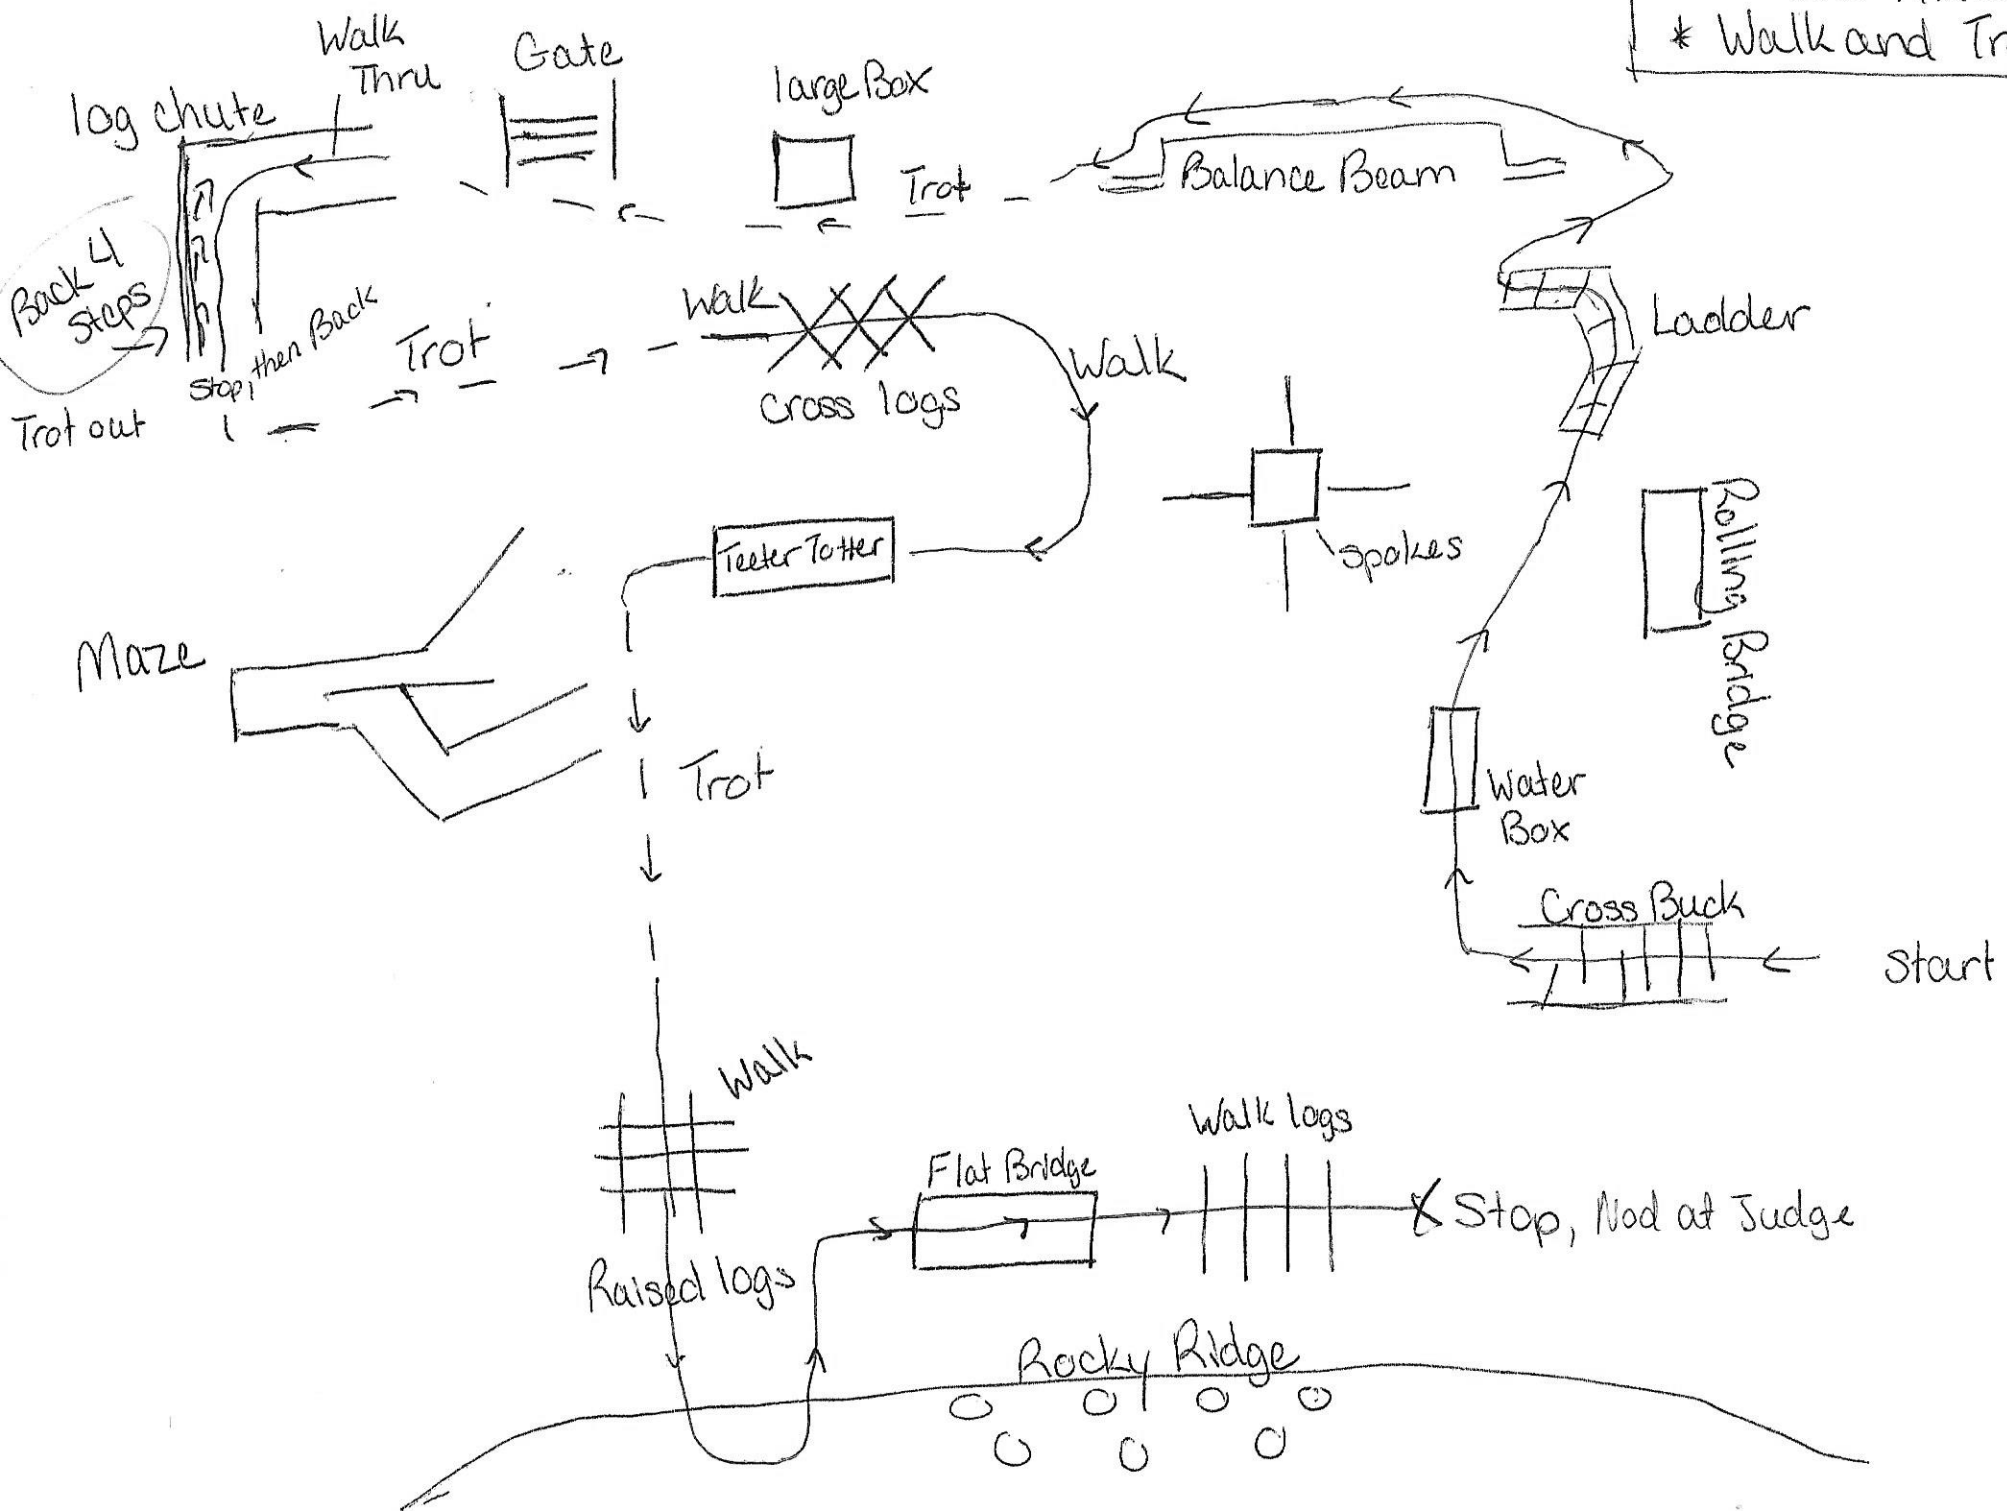 * Walk and
Walk
Thru
Gate
large Box
log chute
Trot
Balance Beam
Back 4
Steps
Stop, then Back
Trot out
Trot
Walk
cross logs
Walk
Ladder
Teeter Totter
Spokes
Rolling Bridge
Maze
Trot
Water
Box
Cross Buck
Start
Walk
Raised logs
Flat Bridge
Walk logs
X Stop, Nod at Judge
Rocky Ridge